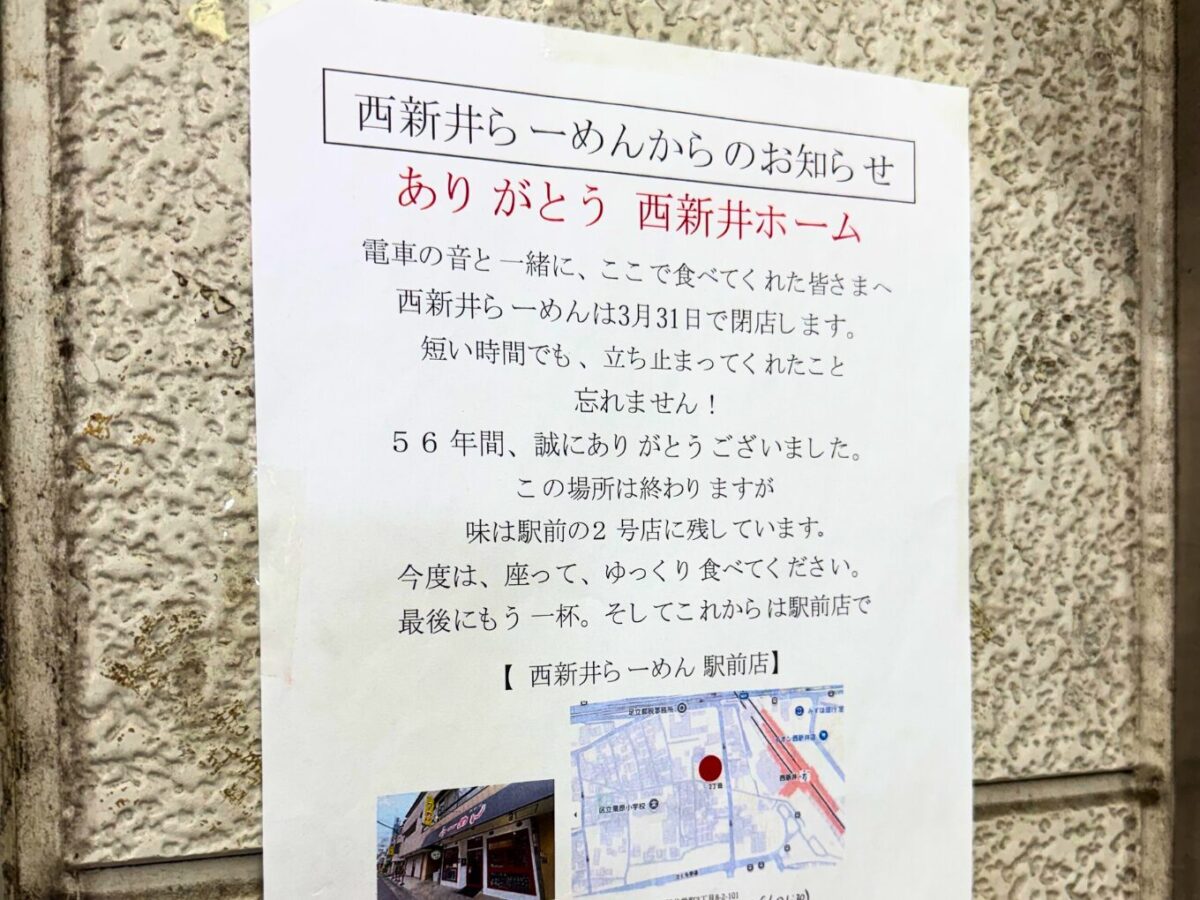 西新井らーめんからのお知らせ
ありがとう 西新井ホーム
電車の音と一緒に、ここで食べてくれた皆さまへ
西新井らーめんは3月31日で閉店します。
短い時間でも、立ち止まってくれたこと
忘れません！
５６年間、誠にありがとうございました。
この場所は終わりますが
味は駅前の２号店に残しています。
今度は、座って、ゆっくり食べてください。
最後にもう一杯。そしてこれからは駅前店で
【 西新井らーめん 駅前店】
足立都税事務所
みずほ銀行
イオン西新井店
西新井
2丁目
区立栗原小学校
らーめん